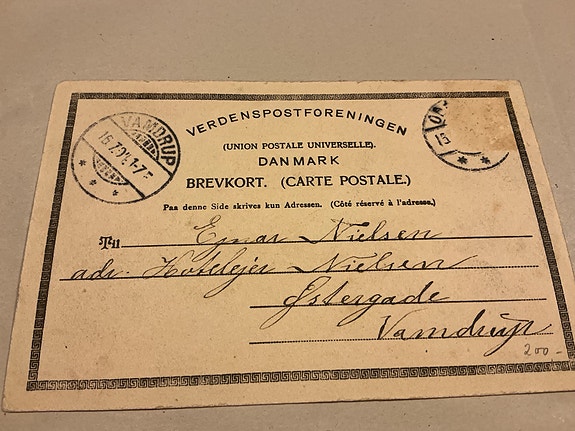 VERDENSPOSTFORENINGEN
(UNION POSTALE UNIVERSELLE).
DANMARK
BREVKORT. (CARTE POSTALE.)
Paa denne Side skrives kun Adressen. (Côté réservé à l'adresse.)
VAMDRUP
Til Ejnar Nielsen
adr. Hotelejer Nielsen
Østergade
Vamdrup
200,-